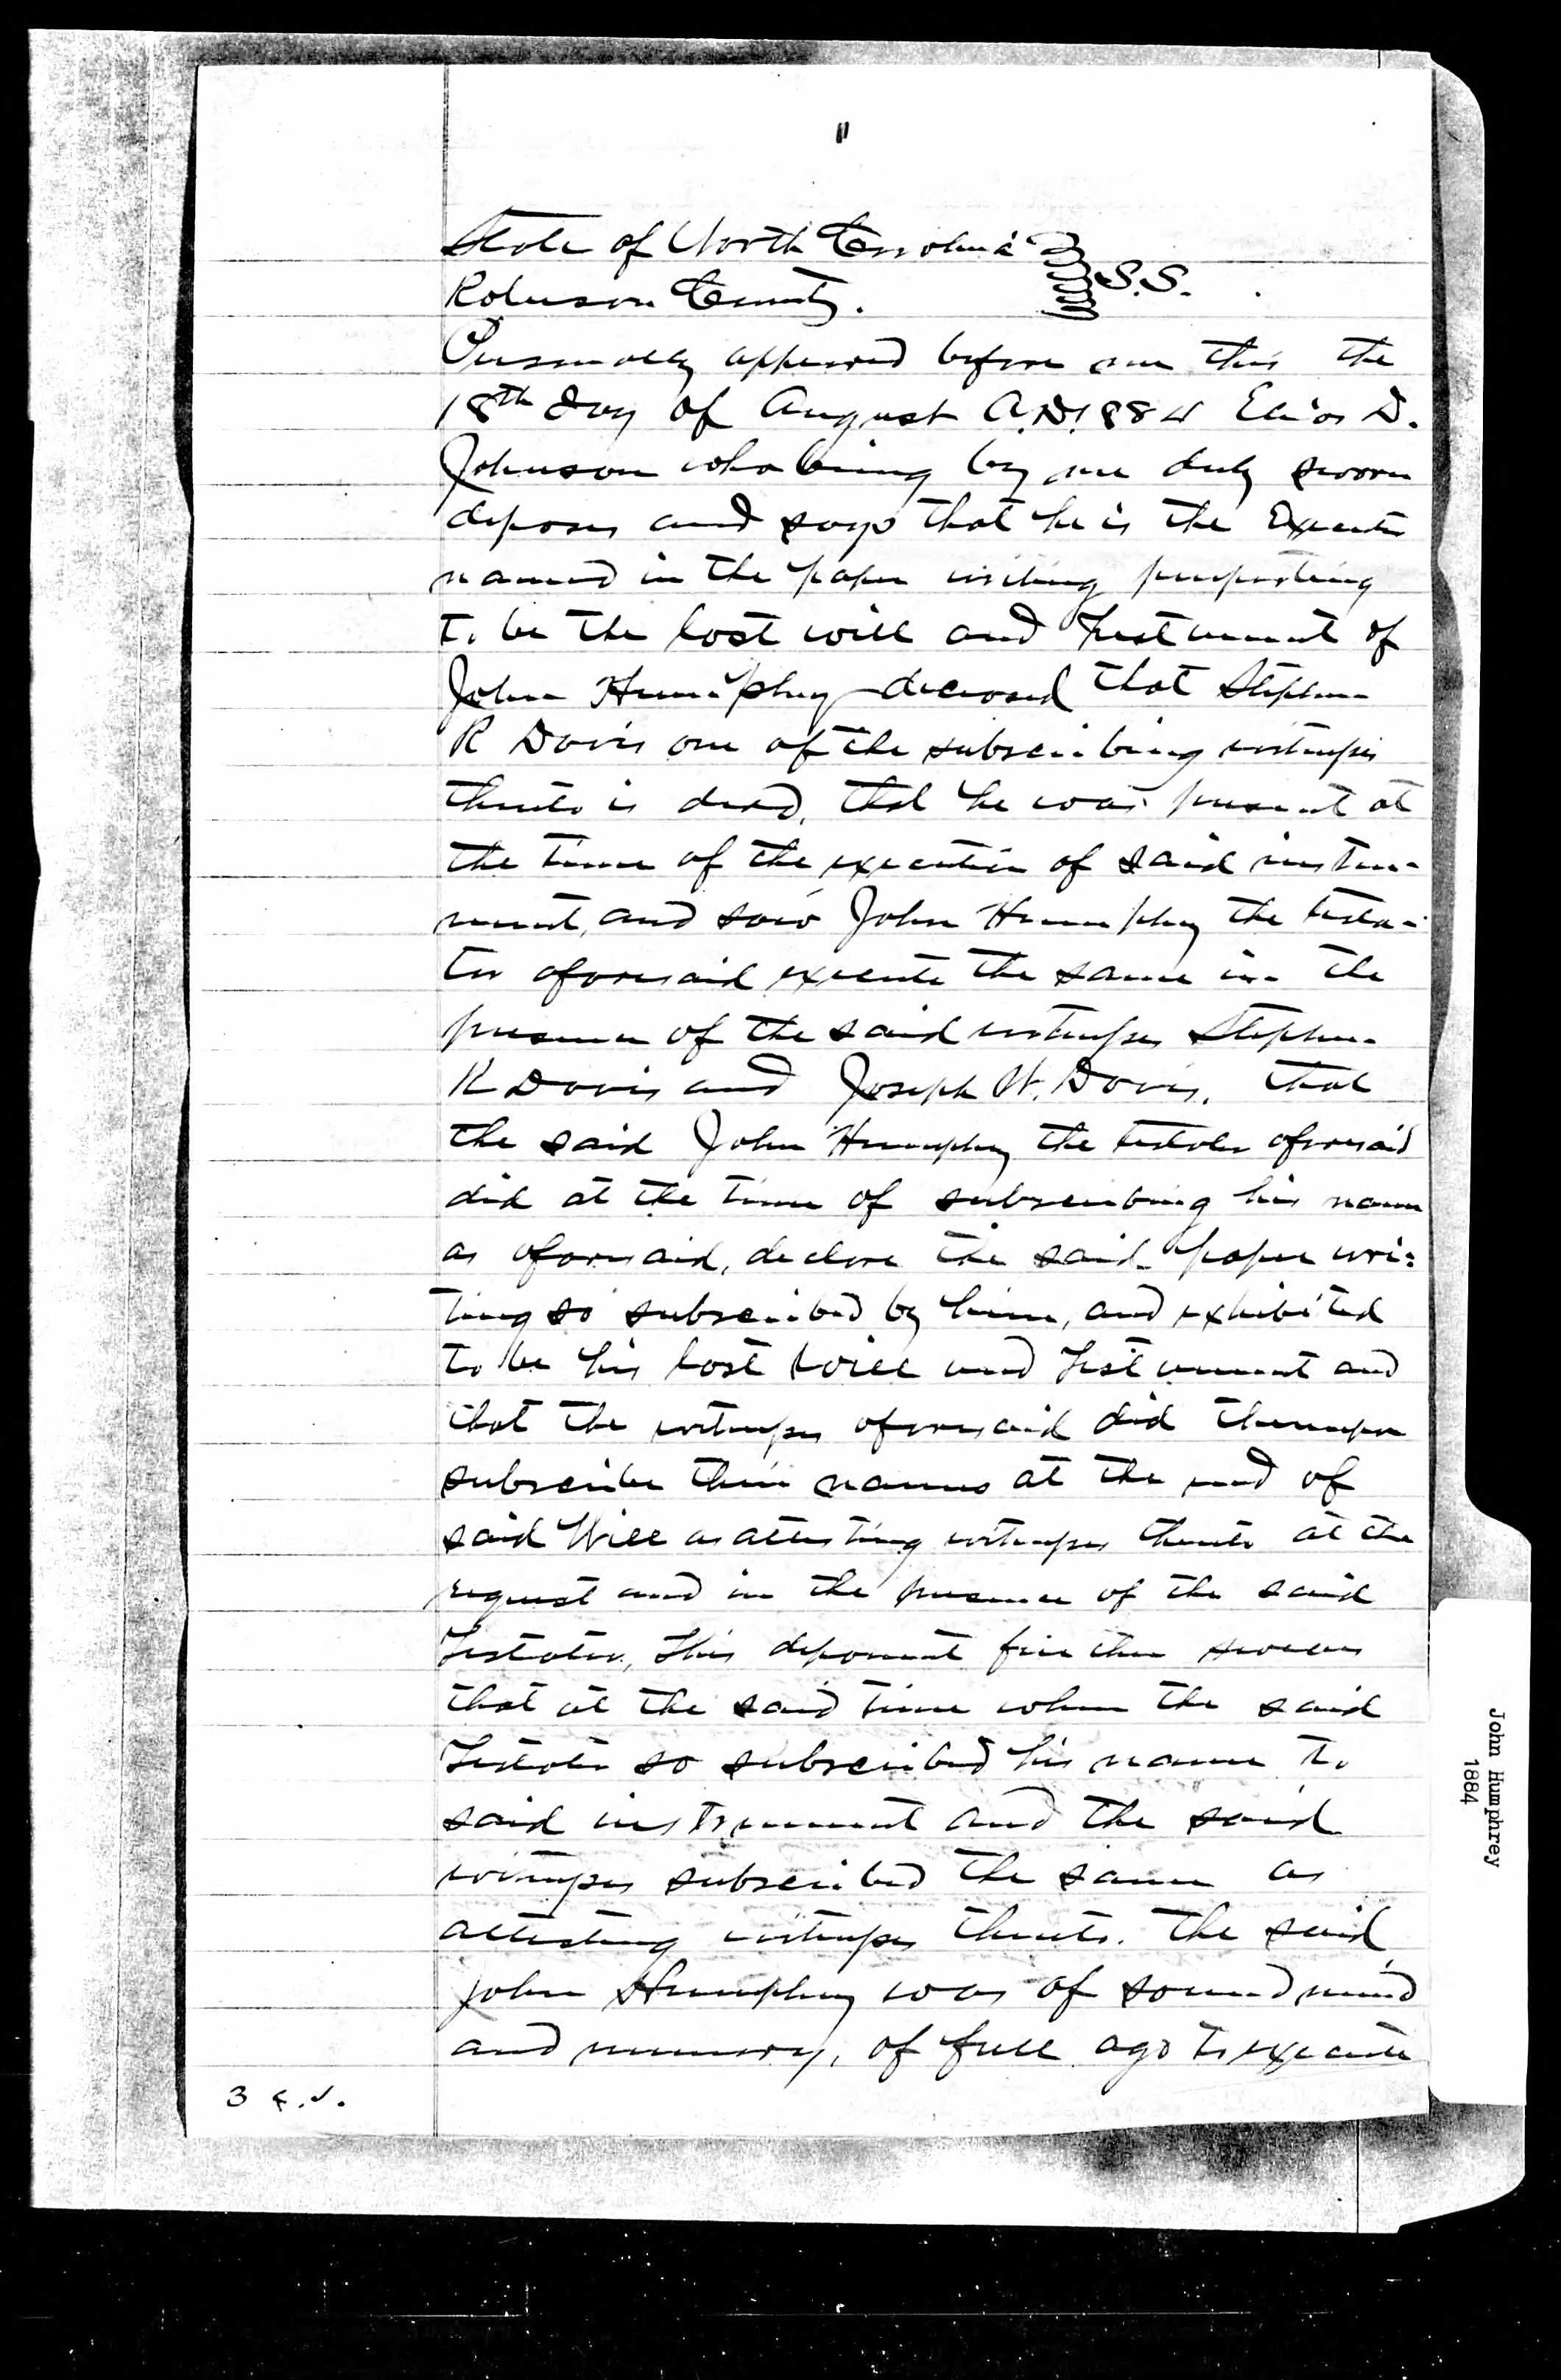 "
State of North Carolina
Robeson County. S.S.
Personally appeared before me this the
18th day of August A.D. 1884 Elias D.
Johnson who being by me duly sworn
deposes and says that he is the Executor
named in the paper writing purporting
to be the last will and Testament of
John Humphrey deceased that Stephen
R Davis one of the subscribing witnesses
thereto is dead, that he was present at
the time of the execution of said instru-
ment, and saw John Humphrey the testa-
tor aforesaid execute the same in the
presence of the said witnesses Stephen
R Davis and Joseph W. Davis, that
the said John Humphrey the testator aforesaid
did at the time of subscribing his name
as aforesaid, declare the said paper wri-
ting so subscribed by him, and exhibited
to be his last will and Testament and
that the witnesses aforesaid did thereupon
subscribe their names at the end of
said Will as attesting witnesses thereto at the
request and in the presence of the said
Testator, This deponent further swears
that at the said time when the said
Testator so subscribed his name to
said instrument and the said
witnesses subscribed the same as
attesting witnesses thereto. The said
John Humphrey was of sound mind
and memory, of full age to execute
3
John Humphrey
1884